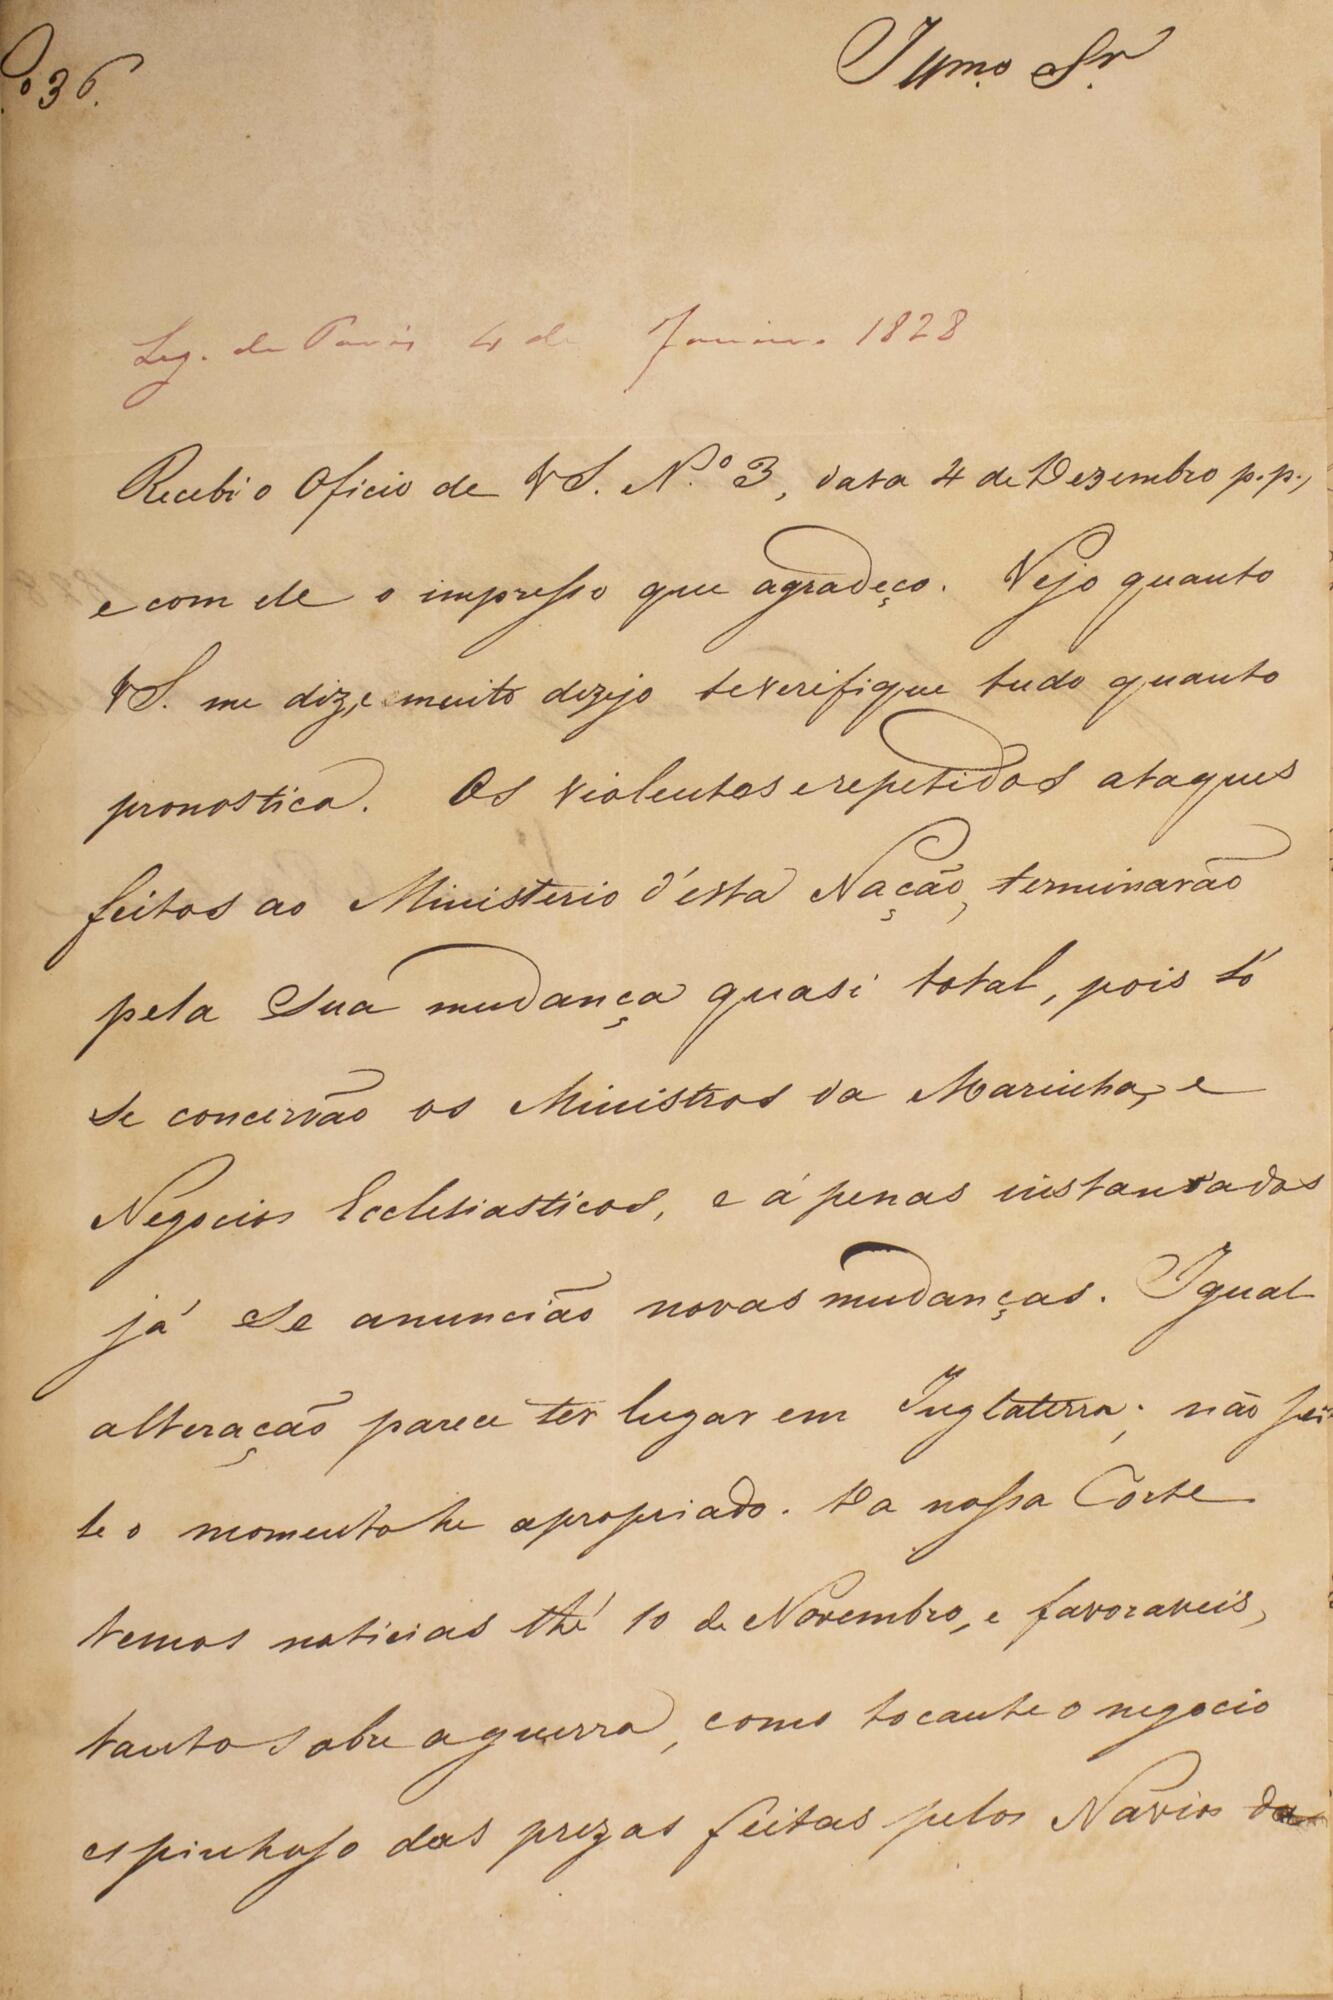 N.º 36.
Illmo. Sr.
Leg. de Paris 4 de Janeiro 1828
Recebi o Oficio de VS. N.º 3, data 4 de Dezembro p.p.,
e com ele o impresso que agradeço. Vejo quanto
VS. me diz, e muito dezejo se verifique tudo quanto
pronostica. Os violentos e repetidos ataques
feitos ao Ministerio d'esta Nação, terminarão
pela sua mudança quasi total, pois só
se concervão os Ministros da Marinha, e
Negocios Ecclesiasticos, e á penas instaurados
já se anuncião novas mudanças. Igual
alteração parece ter lugar em Inglaterra; não sei
se o momento he apropriado. Da nossa Corte
temos noticias thé 10 de Novembro, e favoraveis,
tanto sobre a guerra, como tocante o negocio
espinhoso das prezas feitas pelos Navios da